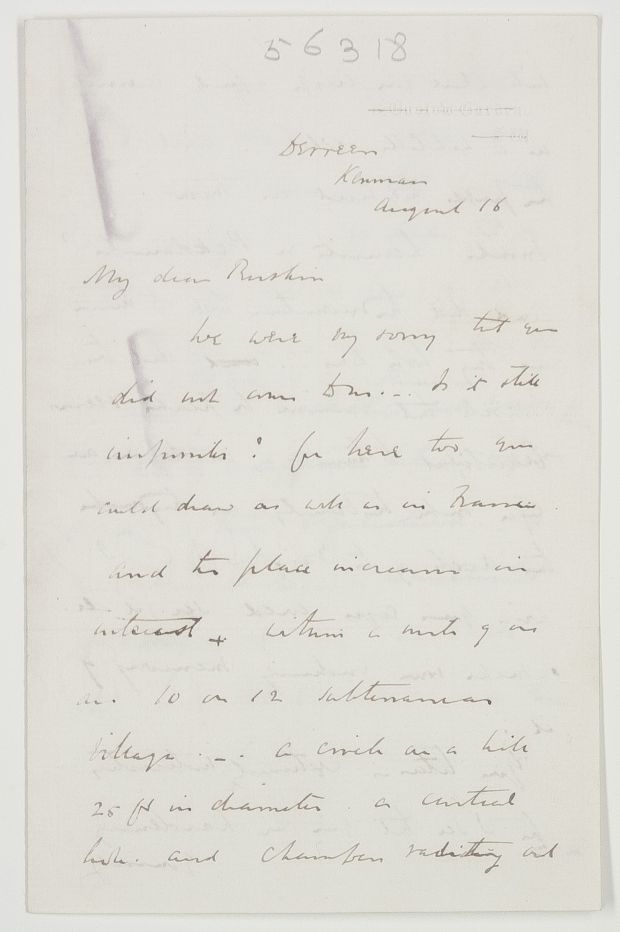 56318
Derreen
Kenmare
August 16
My dear Ruskin
We were very sorry that you
did not come Dear... Is it still
impossible? for here too you
could draw as well as in France.
and the place increases in
interest + within a mile of us
are 10 or 12 subterranean
villages. -. a circle on a hill
25 ft in diameter. a central
hole. and chambers radiating out